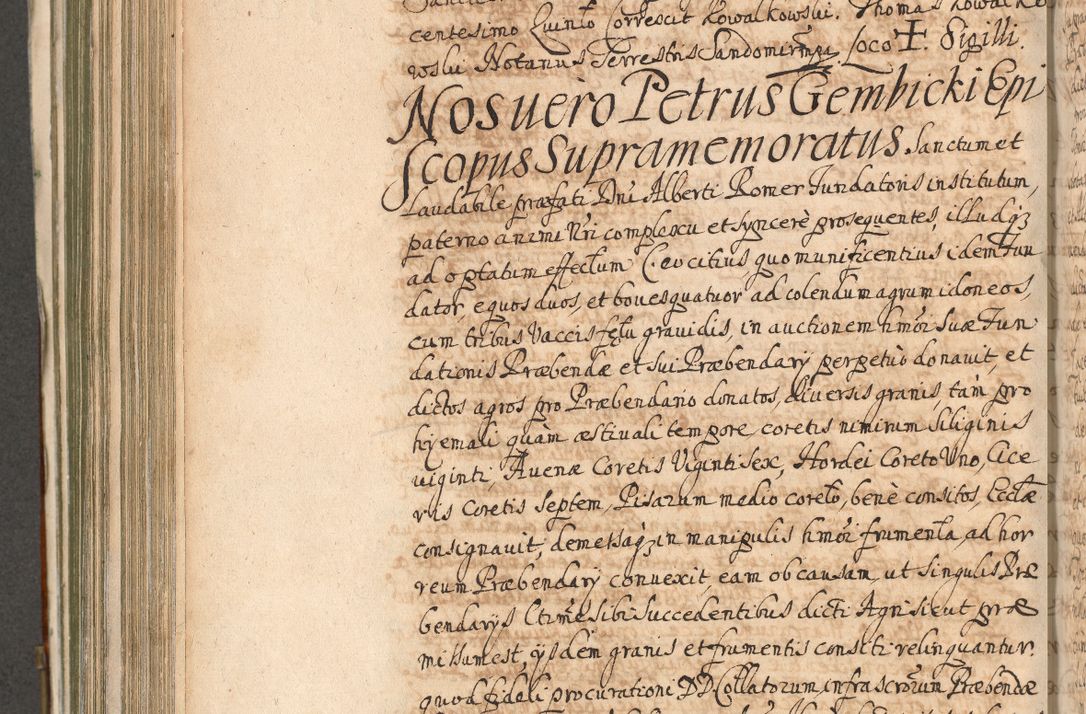 centesimo Quinto Correxit Kowalkowski. Thomas Kowalko
wski Notarius Terrestris Sandomirmpp. Loco ☩ Sigilli.
Nos uerò Petrus Gembicki Epi
scopus Supramemoratus Sanctum et
Laudabile præfati Dni Alberti Romer Fundatoris institutum,
paterno animi Nri complexu et syncerè prosequentes, illudq3
ad optatum effectum eo citius quo munificentius idem Fun
dator, equos duos, et boues quatuor ad colendum agrum idoneos,
cum tribus Vaccis fętu grauidis, in auctionem hmoi suæ Fun
dationis Præbendæ et sui Præbendarij perpetuò donauit, et
dictos agros pro Præbendario donatos, diuersis granis, tàm pro
hyemali quàm æstiuali tempore coretis nimirum siliginis
uiginti, Auenæ Coretis Viginti sex, Hordei Coreto Vno, Cice
ris Coretis septem, Pisarum medio coreto, benè consitos, Ecclæ
consignauit, demessaq3 in manipulis hmoi frumenta, ad hor
reum Præbendarij conuexit, eam ob causam, ut singulis Præ
bendarijs sibi succedentibus dicti Agri sicut præ
missum est, ijsdem granis et frumentis consiti relinquantur.
quod fideli procurationi DD Collatorum infrascrorum Præbendæ